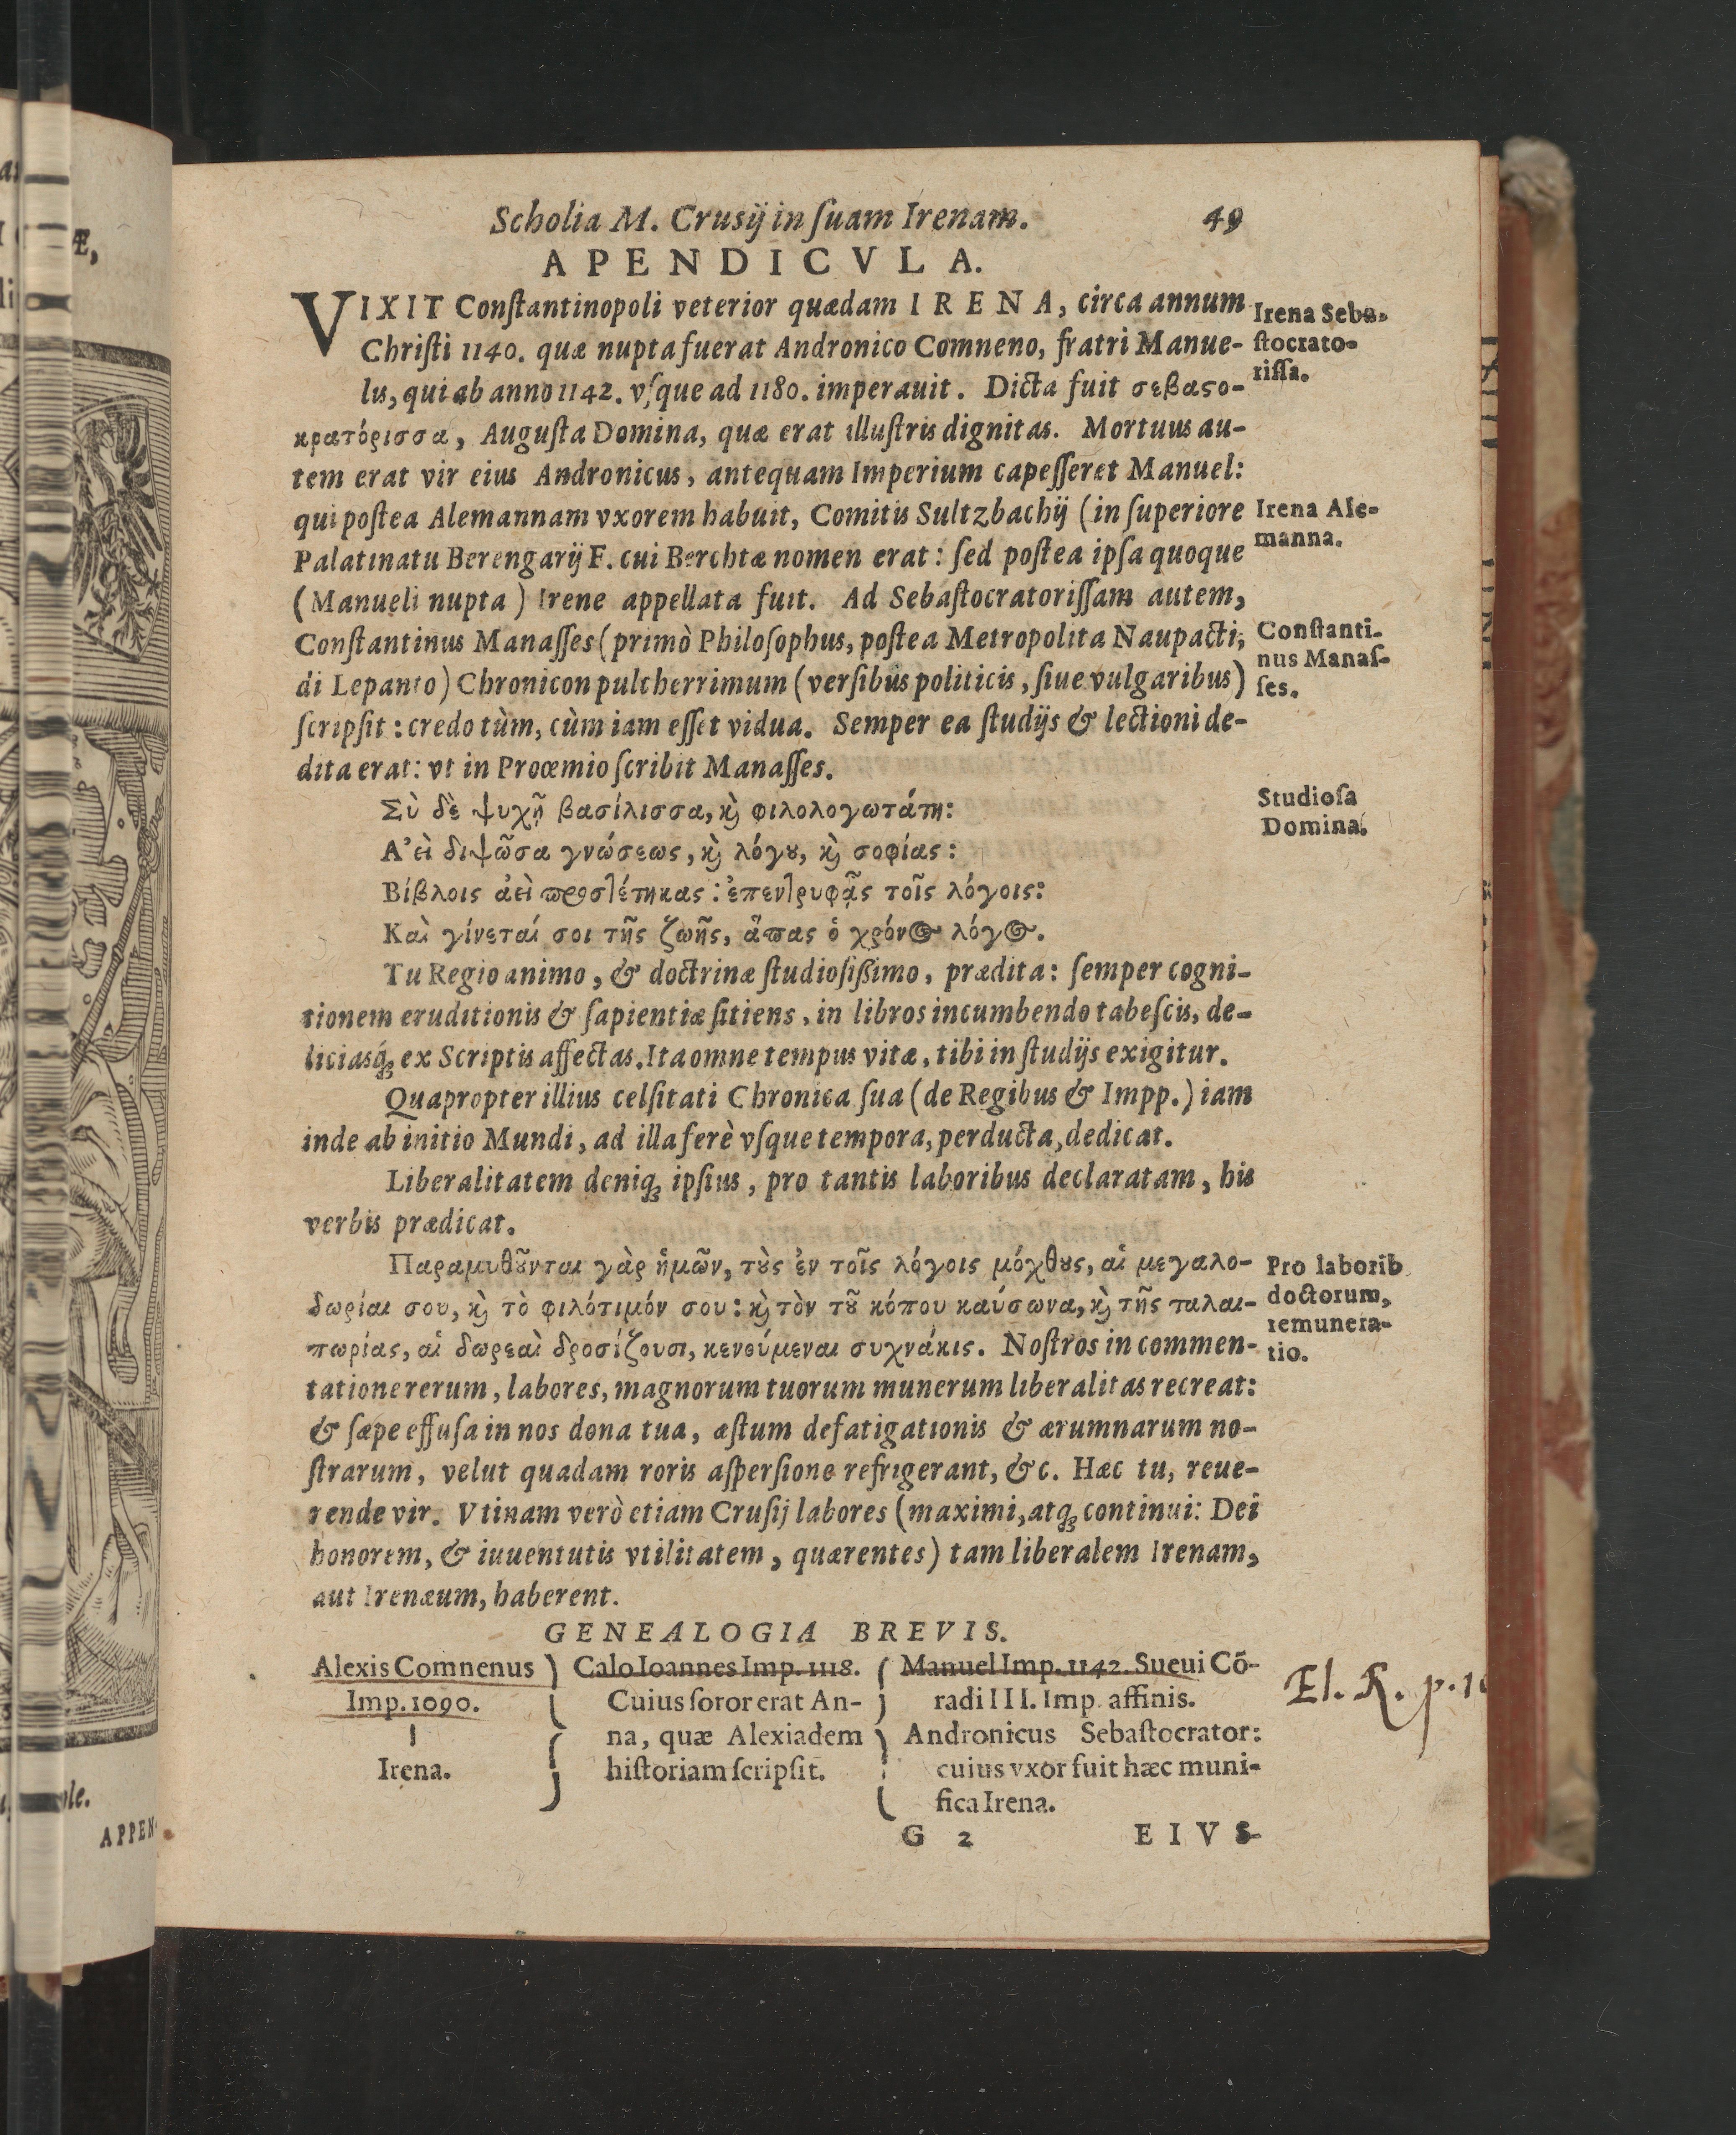 Scholia M. Crusij in ſuam Irenam. 49
APENDICVLA.
VIXIT Conſtantinopoli veterior quædam IRENA, circa annum
Chriſti 1140. quæ nupta fuerat Andronico Comneno, fratri Manue-
lis, qui ab anno 1142. vſque ad 1180. imperauit. Dicta fuit σεβαϛο-
κρατόρισσα, Auguſta Domina, quæ erat illuſtris dignitas. Mortuus au-
tem erat vir eius Andronicus, antequam Imperium capeſſeret Manuel:
qui poſtea Alemannam vxorem habuit, Comitis Sultzbachij (in ſuperiore
Palatinatu Berengarij F. cui Berchtæ nomen erat: ſed poſtea ipſa quoque
(Manueli nupta) Irene appellata fuit. Ad Sebaſtocratoriſſam autem,
Conſtantinus Manaſſes (primò Philoſophus, poſtea Metropolita Naupacti,
di Lepanto) Chronicon pulcherrimum (verſibus politicis, ſiue vulgaribus)
ſcripſit: credo tùm, cùm iam eſſet vidua. Semper ea ſtudijs & lectioni de-
dita erat: vt in Proœmio ſcribit Manaſſes.
Σὺ δὲ ψυχῇ βασίλισσα, κ̀ φιλολογωτάτη:
Ἀεὶ διψῶσα γνώσεως, κ̀ λόγȣ, κ̀ σοφίας:
Βίβλοις ἀεὶ προστέτηκας: ἐπεντρυφᾷς τοῖς λόγοις:
Καὶ γίνεταί σοι τῆς ζωῆς, ἅπας ὁ χρόνος λόγος.
Tu Regio animo, & doctrinæ ſtudioſißimo, prædita: ſemper cogni-
tionem eruditionis & ſapientiæ ſitiens, in libros incumbendo tabeſcis, de-
liciasq́ꝫ ex Scriptis affectas. Ita omne tempus vitæ, tibi in ſtudijs exigitur.
Quapropter illius celſitati Chronica ſua (de Regibus & Impp.) iam
inde ab initio Mundi, ad illa ferè vſque tempora, perducta, dedicat.
Liberalitatem deniqꝫ ipſius, pro tantis laboribus declaratam, his
verbis prædicat.
Παραμυθȣ͂νται γὰρ ἡμῶν, τȣ̀ς ἐν τοῖς λόγοις μόχθȣς, αἱ μεγαλο-
δωρίαι σου, κ̀ τὸ φιλότιμόν σου: κ̀ τὸν τȣ͂ κόπου καύσωνα, κ̀ τῆς ταλαι-
πωρίας, αἱ δωρεαὶ δροσίζουσι, κενούμεναι συχνάκις. Noſtros in commen-
tatione rerum, labores, magnorum tuorum munerum liberalitas recreat:
& ſæpe effuſa in nos dona tua, æſtum defatigationis & ærumnarum no-
ſtrarum, velut quadam roris aſperſione refrigerant, &c. Hæc tu, reue-
rende vir. Vtinam verò etiam Cruſij labores (maximi, atqꝫ continui: Dei
honorem, & iuuentutis vtilitatem, quærentes) tam liberalem Irenam,
aut Irenæum, haberent.
Irena Seba-
ſtocrato-
riſſa.
Irena Ale-
manna.
Conſtanti-
nus Manaſ-
ſes.
Studioſa
Domina.
Pro laborib
doctorum,
remunera-
tio.
GENEALOGIA BREVIS.
Alexis Comnenus
Imp. 1090.
Irena.
Calo Ioannes Imp. 1118.
Cuius ſoror erat An-
na, quæ Alexiadem
hiſtoriam ſcripſit.
Manuel Imp. 1142. Sueui Cõ-
radi III. Imp. affinis.
Andronicus Sebaſtocrator:
cuius vxor fuit hæc muni-
fica Irena.
El. R. p.
G 2 EIVS
APPEN-